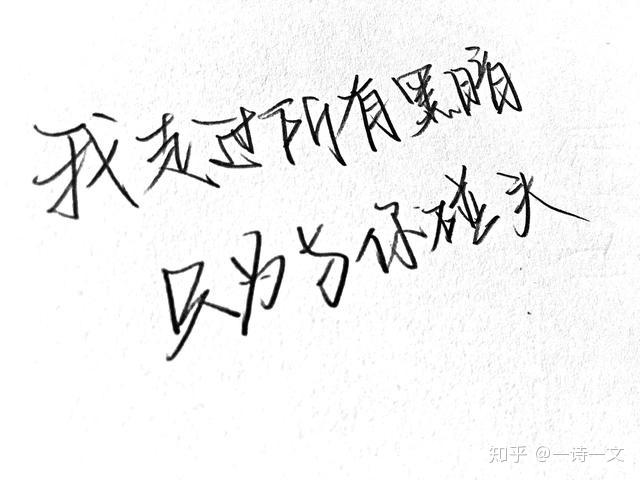 我走过所有黑暗
只为与你碰头
知乎 @一诗一文